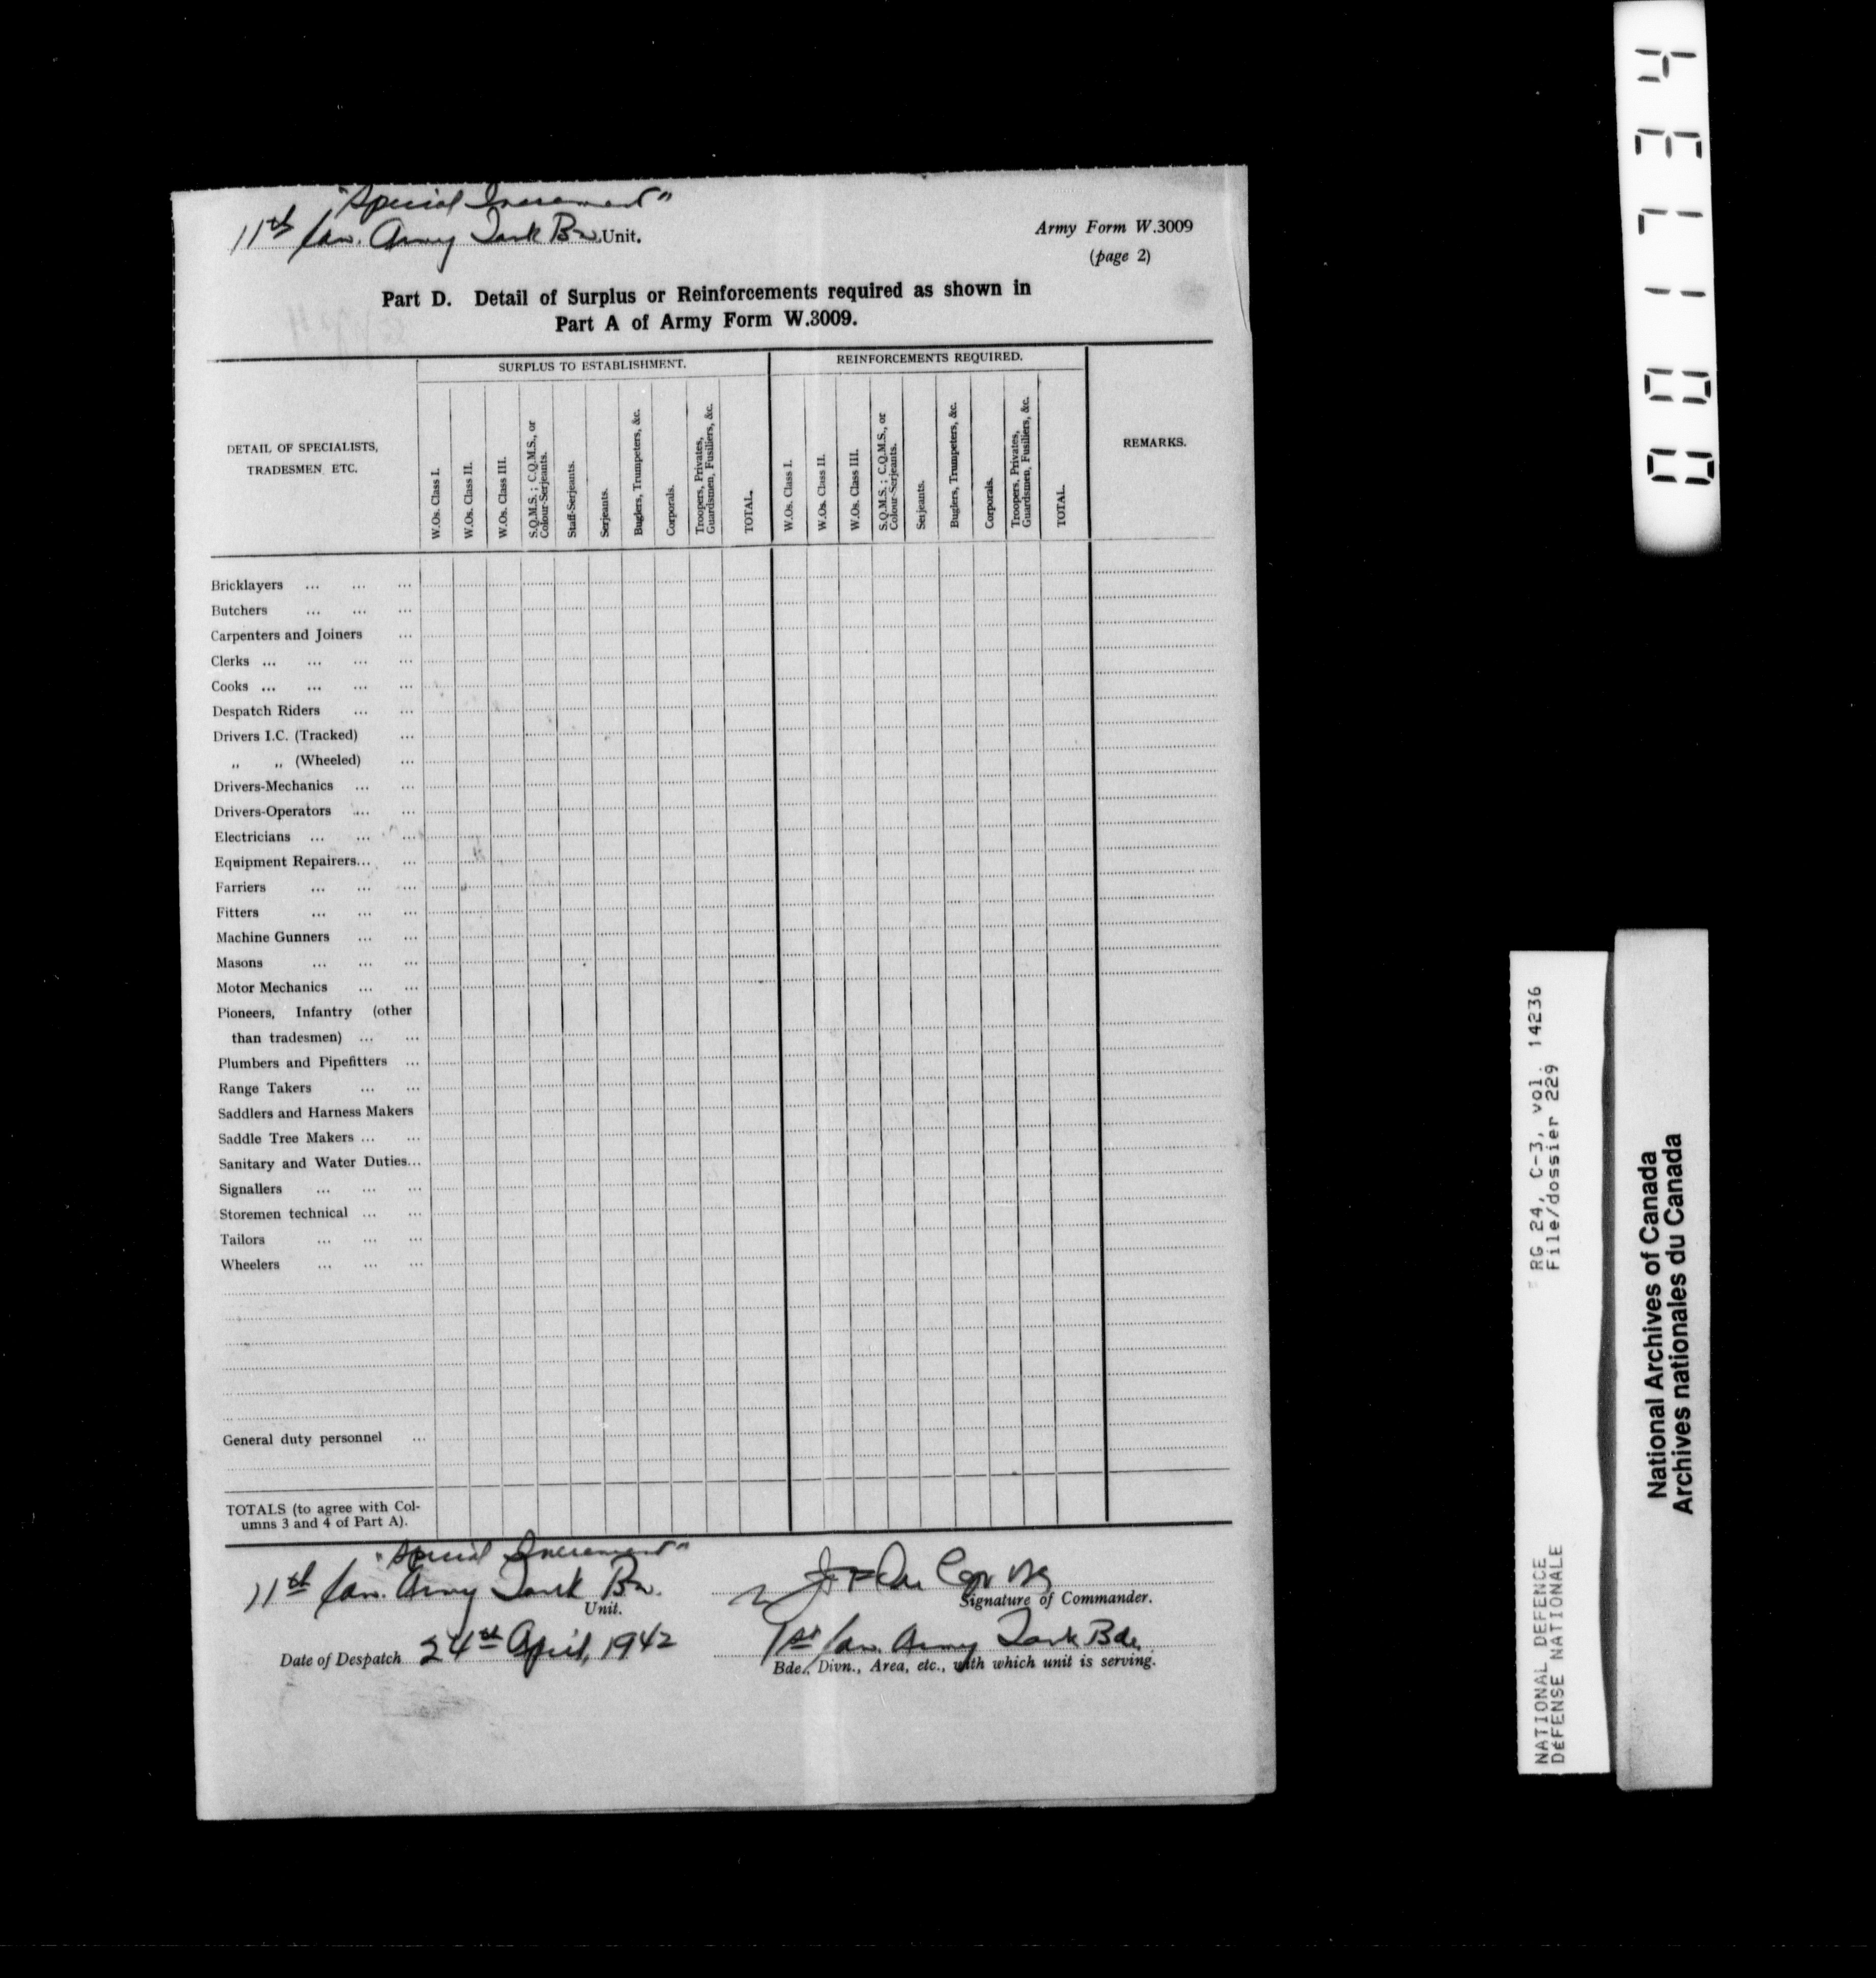 "Special Increment"
11th Can. Army Tank Bn. Unit.
Army Form W.3009
(page 2)
Part D. Detail of Surplus or Reinforcements required as shown in
Part A of Army Form W.3009.
DETAIL OF SPECIALISTS,
TRADESMEN ETC.
SURPLUS TO ESTABLISHMENT.
W.Os. Class I.
W.Os. Class II.
W.Os. Class III.
S.Q.M.S. ; C.Q.M.S., or
Colour-Serjeants.
Staff-Serjeants.
Serjeants.
Buglers, Trumpeters, &c.
Corporals.
Troopers, Privates,
Guardsmen, Fusiliers, &c.
TOTAL.
REINFORCEMENTS REQUIRED.
W.Os. Class I.
W.Os. Class II.
W.Os. Class III.
S.Q.M.S. ; C.Q.M.S., or
Colour-Serjeants.
Serjeants.
Buglers, Trumpeters, &c.
Corporals.
Troopers, Privates,
Guardsmen, Fusiliers, &c.
TOTAL.
REMARKS.
Bricklayers ... ... ...
Butchers ... ... ...
Carpenters and Joiners ...
Clerks ... ... ... ...
Cooks ... ... ... ...
Despatch Riders ... ...
Drivers I.C. (Tracked) ...
„ „ (Wheeled) ...
Drivers-Mechanics ... ...
Drivers-Operators ... ...
Electricians ... ... ...
Equipment Repairers... ...
Farriers ... ... ...
Fitters ... ... ...
Machine Gunners ... ...
Masons ... ... ...
Motor Mechanics ... ...
Pioneers, Infantry (other
than tradesmen) ... ...
Plumbers and Pipefitters ...
Range Takers ... ...
Saddlers and Harness Makers
Saddle Tree Makers ... ...
Sanitary and Water Duties...
Signallers ... ... ...
Storemen technical ... ...
Tailors ... ... ...
Wheelers ... ... ...
General duty personnel ...
TOTALS (to agree with Col-
umns 3 and 4 of Part A).
"Special Increment"
11th Can. Army Tank Bn.
Unit.
Signature of Commander.
Date of Despatch 24th April, 1942
1st Can. Army Tank Bde.
Bde., Divn., Area, etc., with which unit is serving.
001734
RG 24, C-3, vol. 14236
File/dossier 229
NATIONAL DEFENCE
DÉFENSE NATIONALE
National Archives of Canada
Archives nationales du Canada